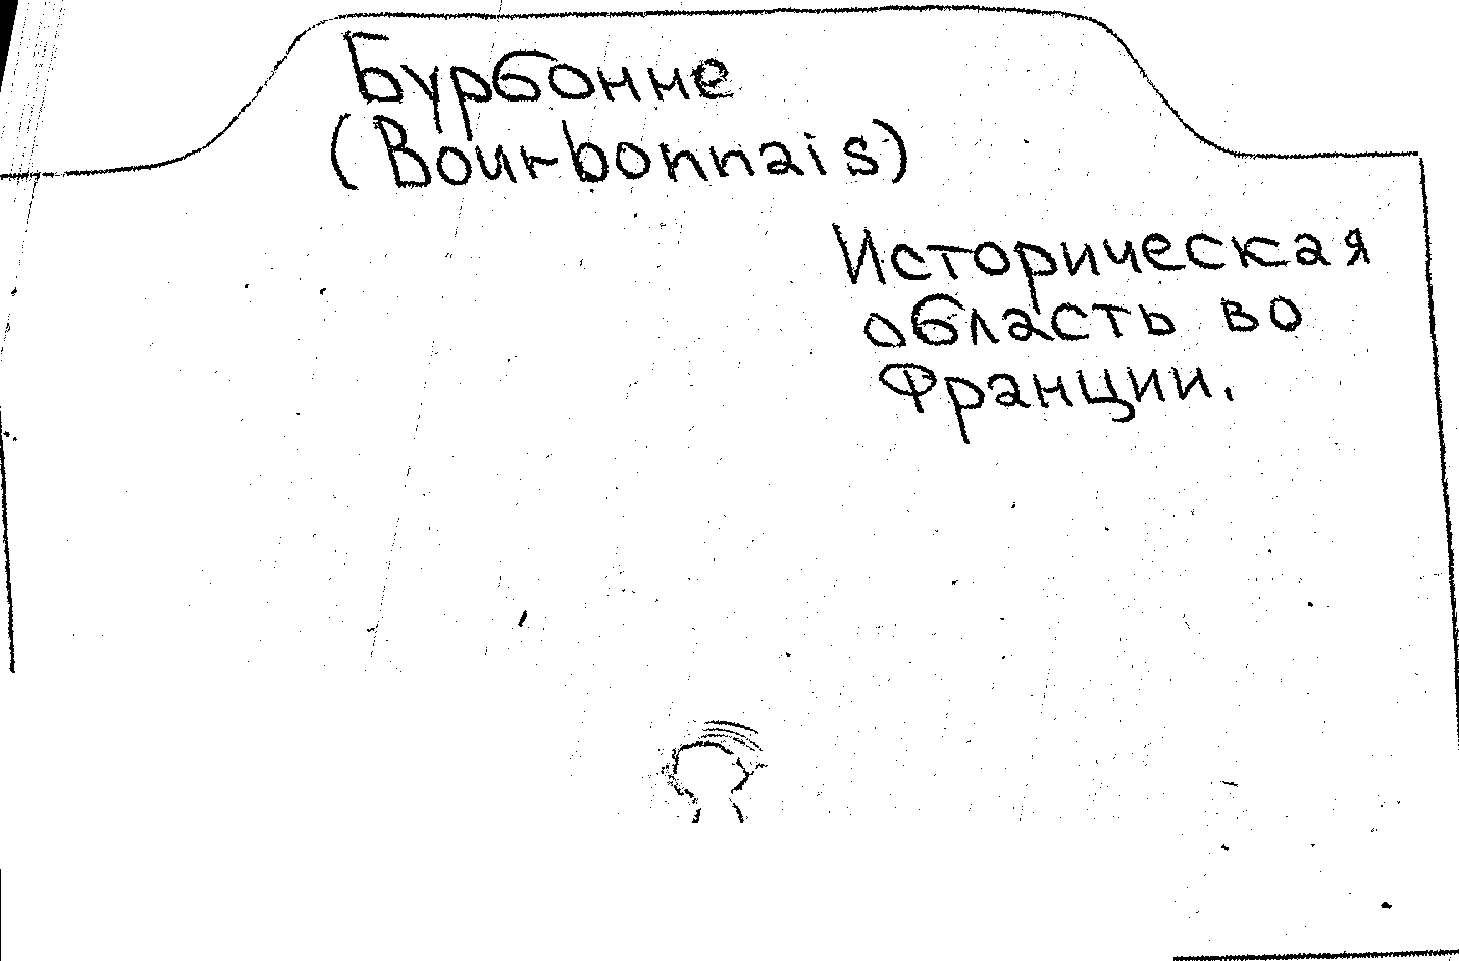 Бурбонне
(Bourbonnais)
Историческая
область во
Франции.